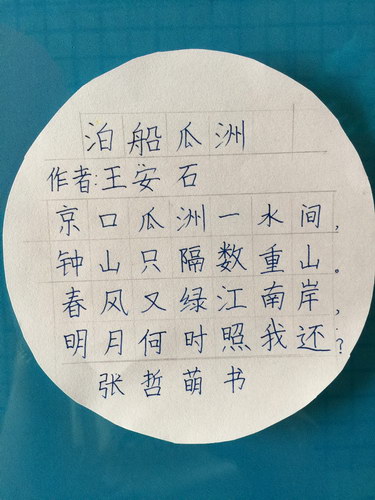 泊船瓜洲
作者:王安石
京口瓜洲一水间,
钟山只隔数重山。
春风又绿江南岸,
明月何时照我还?
张哲萌书